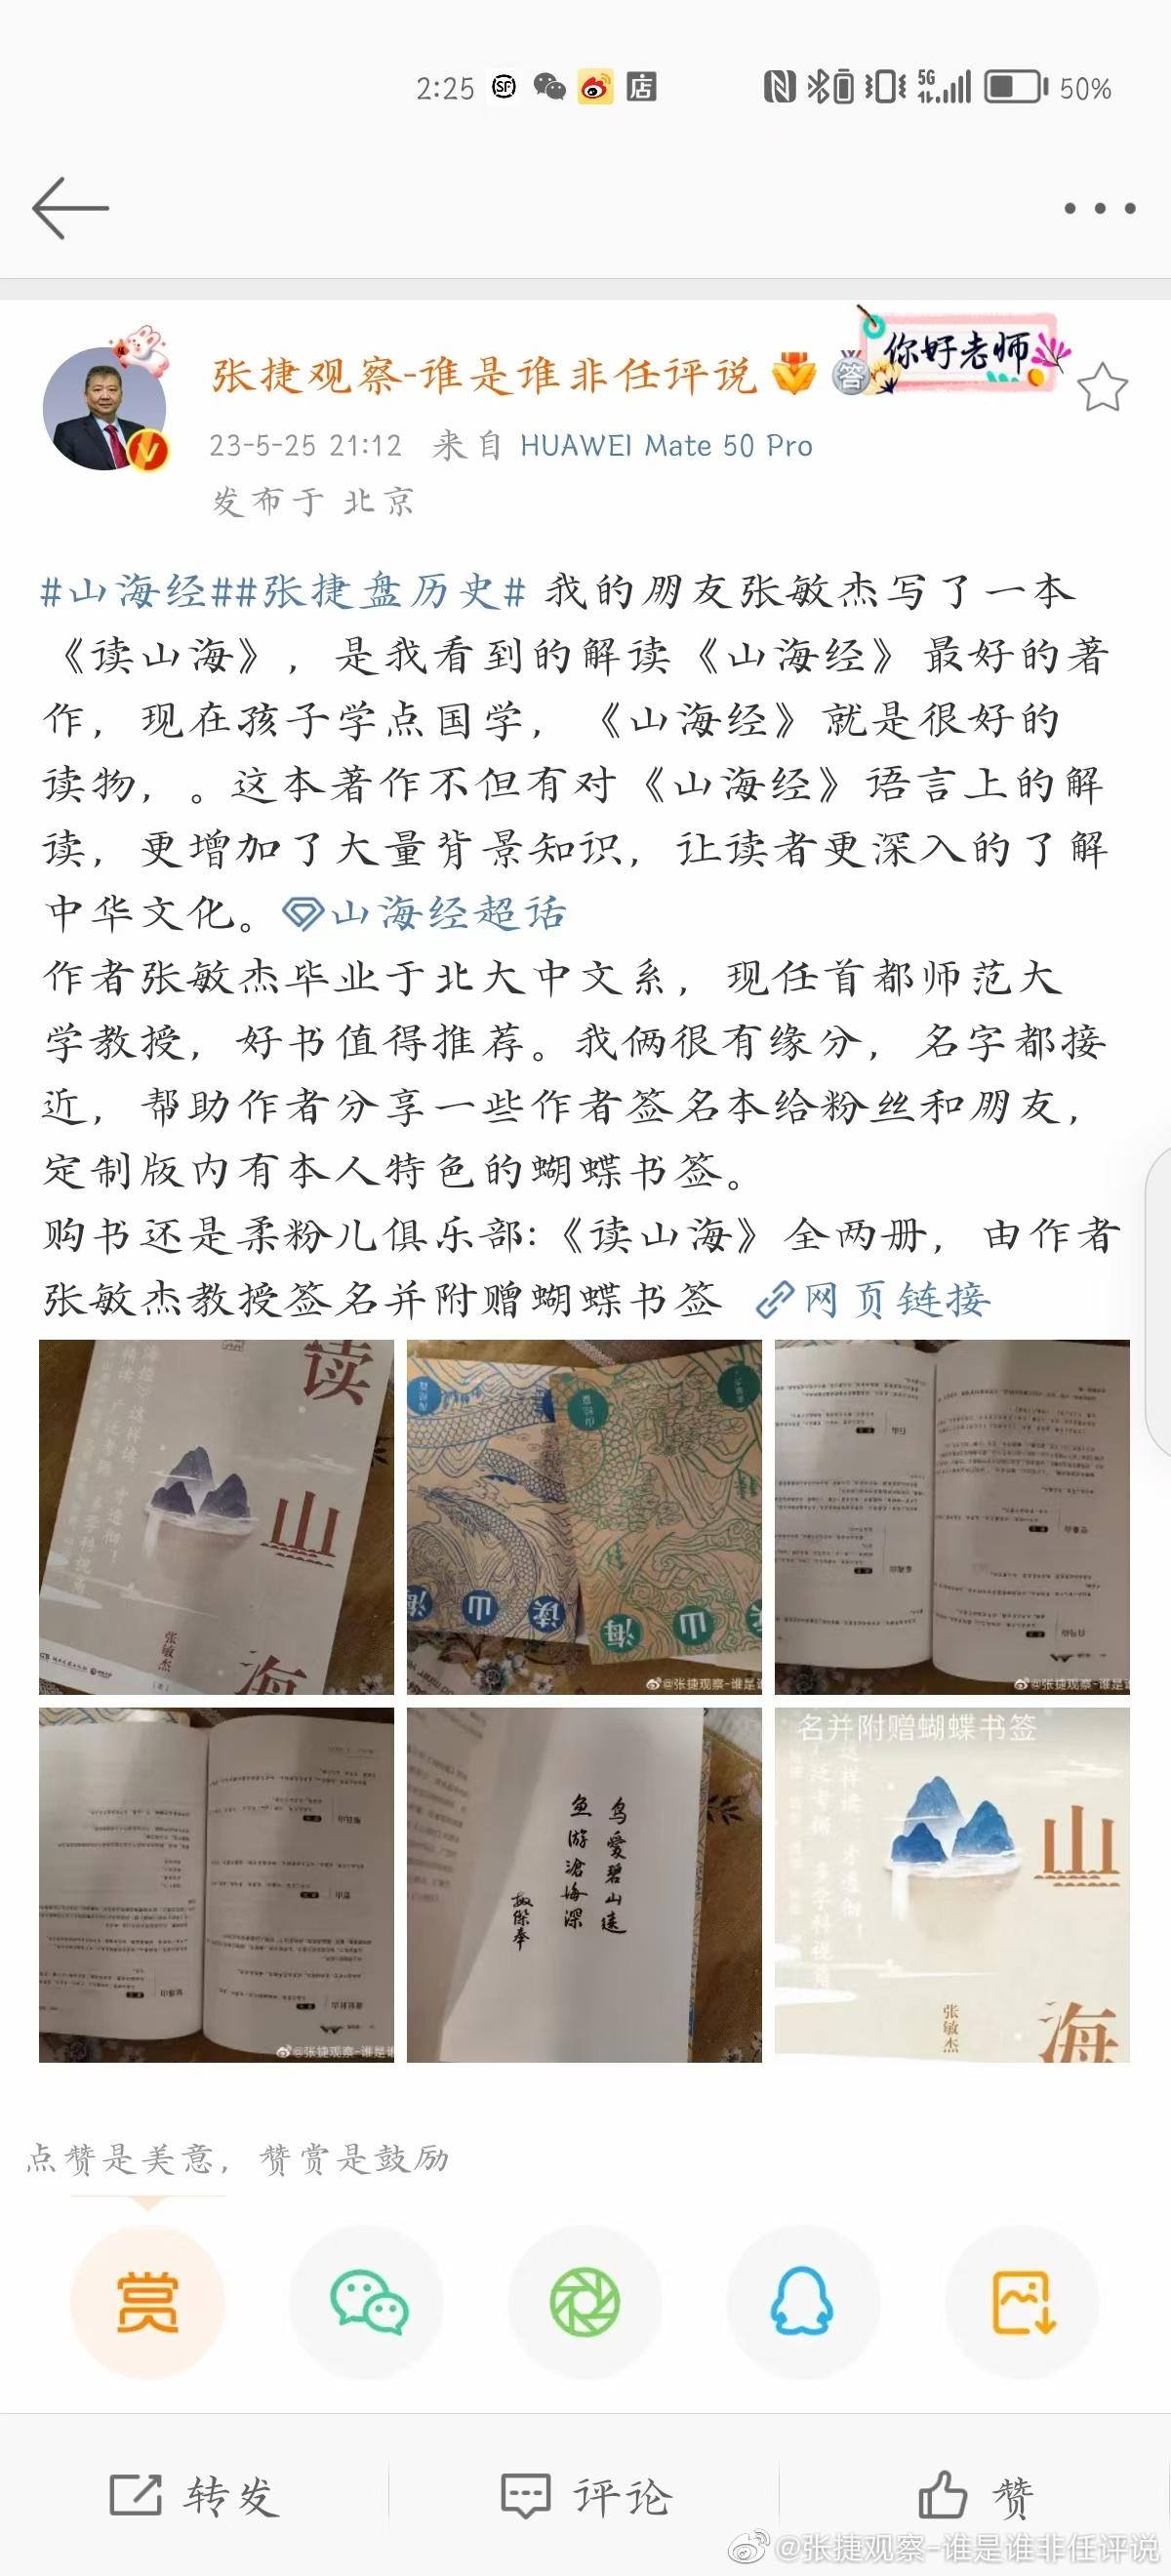 2:25
5G
50%
张捷观察-谁是谁非任评说
答
你好老师
23-5-25 21:12 来自 HUAWEI Mate 50 Pro
发布于 北京
#山海经##张捷盘历史# 我的朋友张敏杰写了一本
《读山海》，是我看到的解读《山海经》最好的著
作，现在孩子学点国学，《山海经》就是很好的
读物，。这本著作不但有对《山海经》语言上的解
读，更增加了大量背景知识，让读者更深入的了解
中华文化。山海经超话
作者张敏杰毕业于北大中文系，现任首都师范大
学教授，好书值得推荐。我俩很有缘分，名字都接
近，帮助作者分享一些作者签名本给粉丝和朋友，
定制版内有本人特色的蝴蝶书签。
购书还是柔粉儿俱乐部:《读山海》全两册，由作者
张敏杰教授签名并附赠蝴蝶书签 网页链接
读
山
海
张敏杰
读
山
海
读
山
海
@张捷观察-谁是谁
@张捷观察-谁是谁
@张捷观察-谁是谁
鸟爱碧山远
鱼游沧海深
敏杰奉
名并附赠蝴蝶书签
山
海
张敏杰
点赞是美意，赞赏是鼓励
赏
转发
评论
赞
@张捷观察-谁是谁非任评说